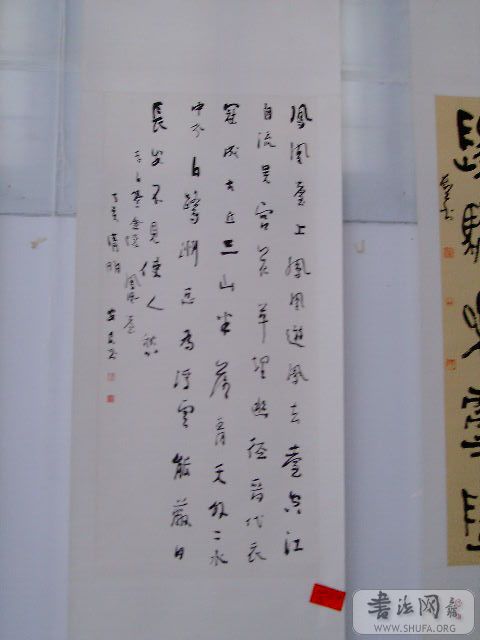 鳳凰臺上鳳凰遊鳳去臺空江
自流吳宮花草埋幽徑晉代衣
冠成古丘三山半落青天外二水
中分白鷺洲總為浮雲能蔽日
長安不見使人愁
李白登金陵鳳凰臺
丁亥清明
书法网
WWW.SHUFA.ORG